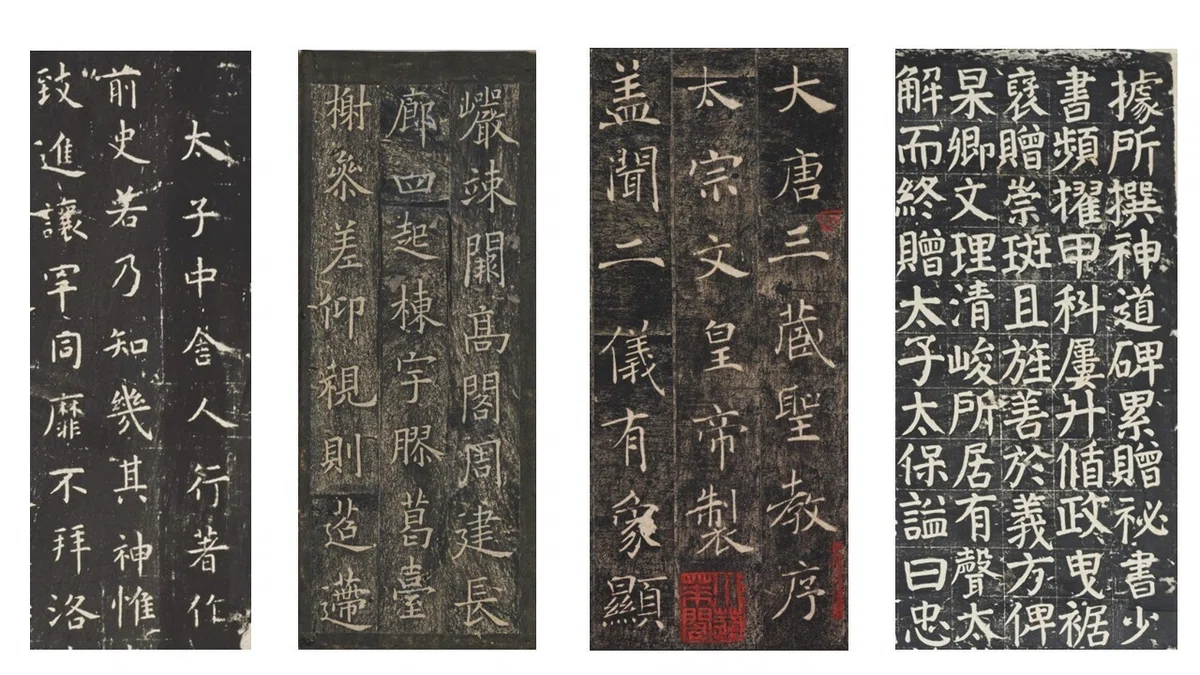 太子中舍人行著作
前史若乃知幾其神惟
致進讓罕同靡不拜洛
巗竦闕高閣周建長
廊四起棟宇膠葛臺
榭參差仰視則迢遰
大唐三藏聖教序
太宗文皇帝製
盖聞二儀有象顯
據所撰神道碑累贈祕書少
書頻擢甲科屢升循政曳裾
褒贈崇班且旌善於義方俾
杲卿文理清峻所居有聲太
解而終贈太子太保謚曰忠